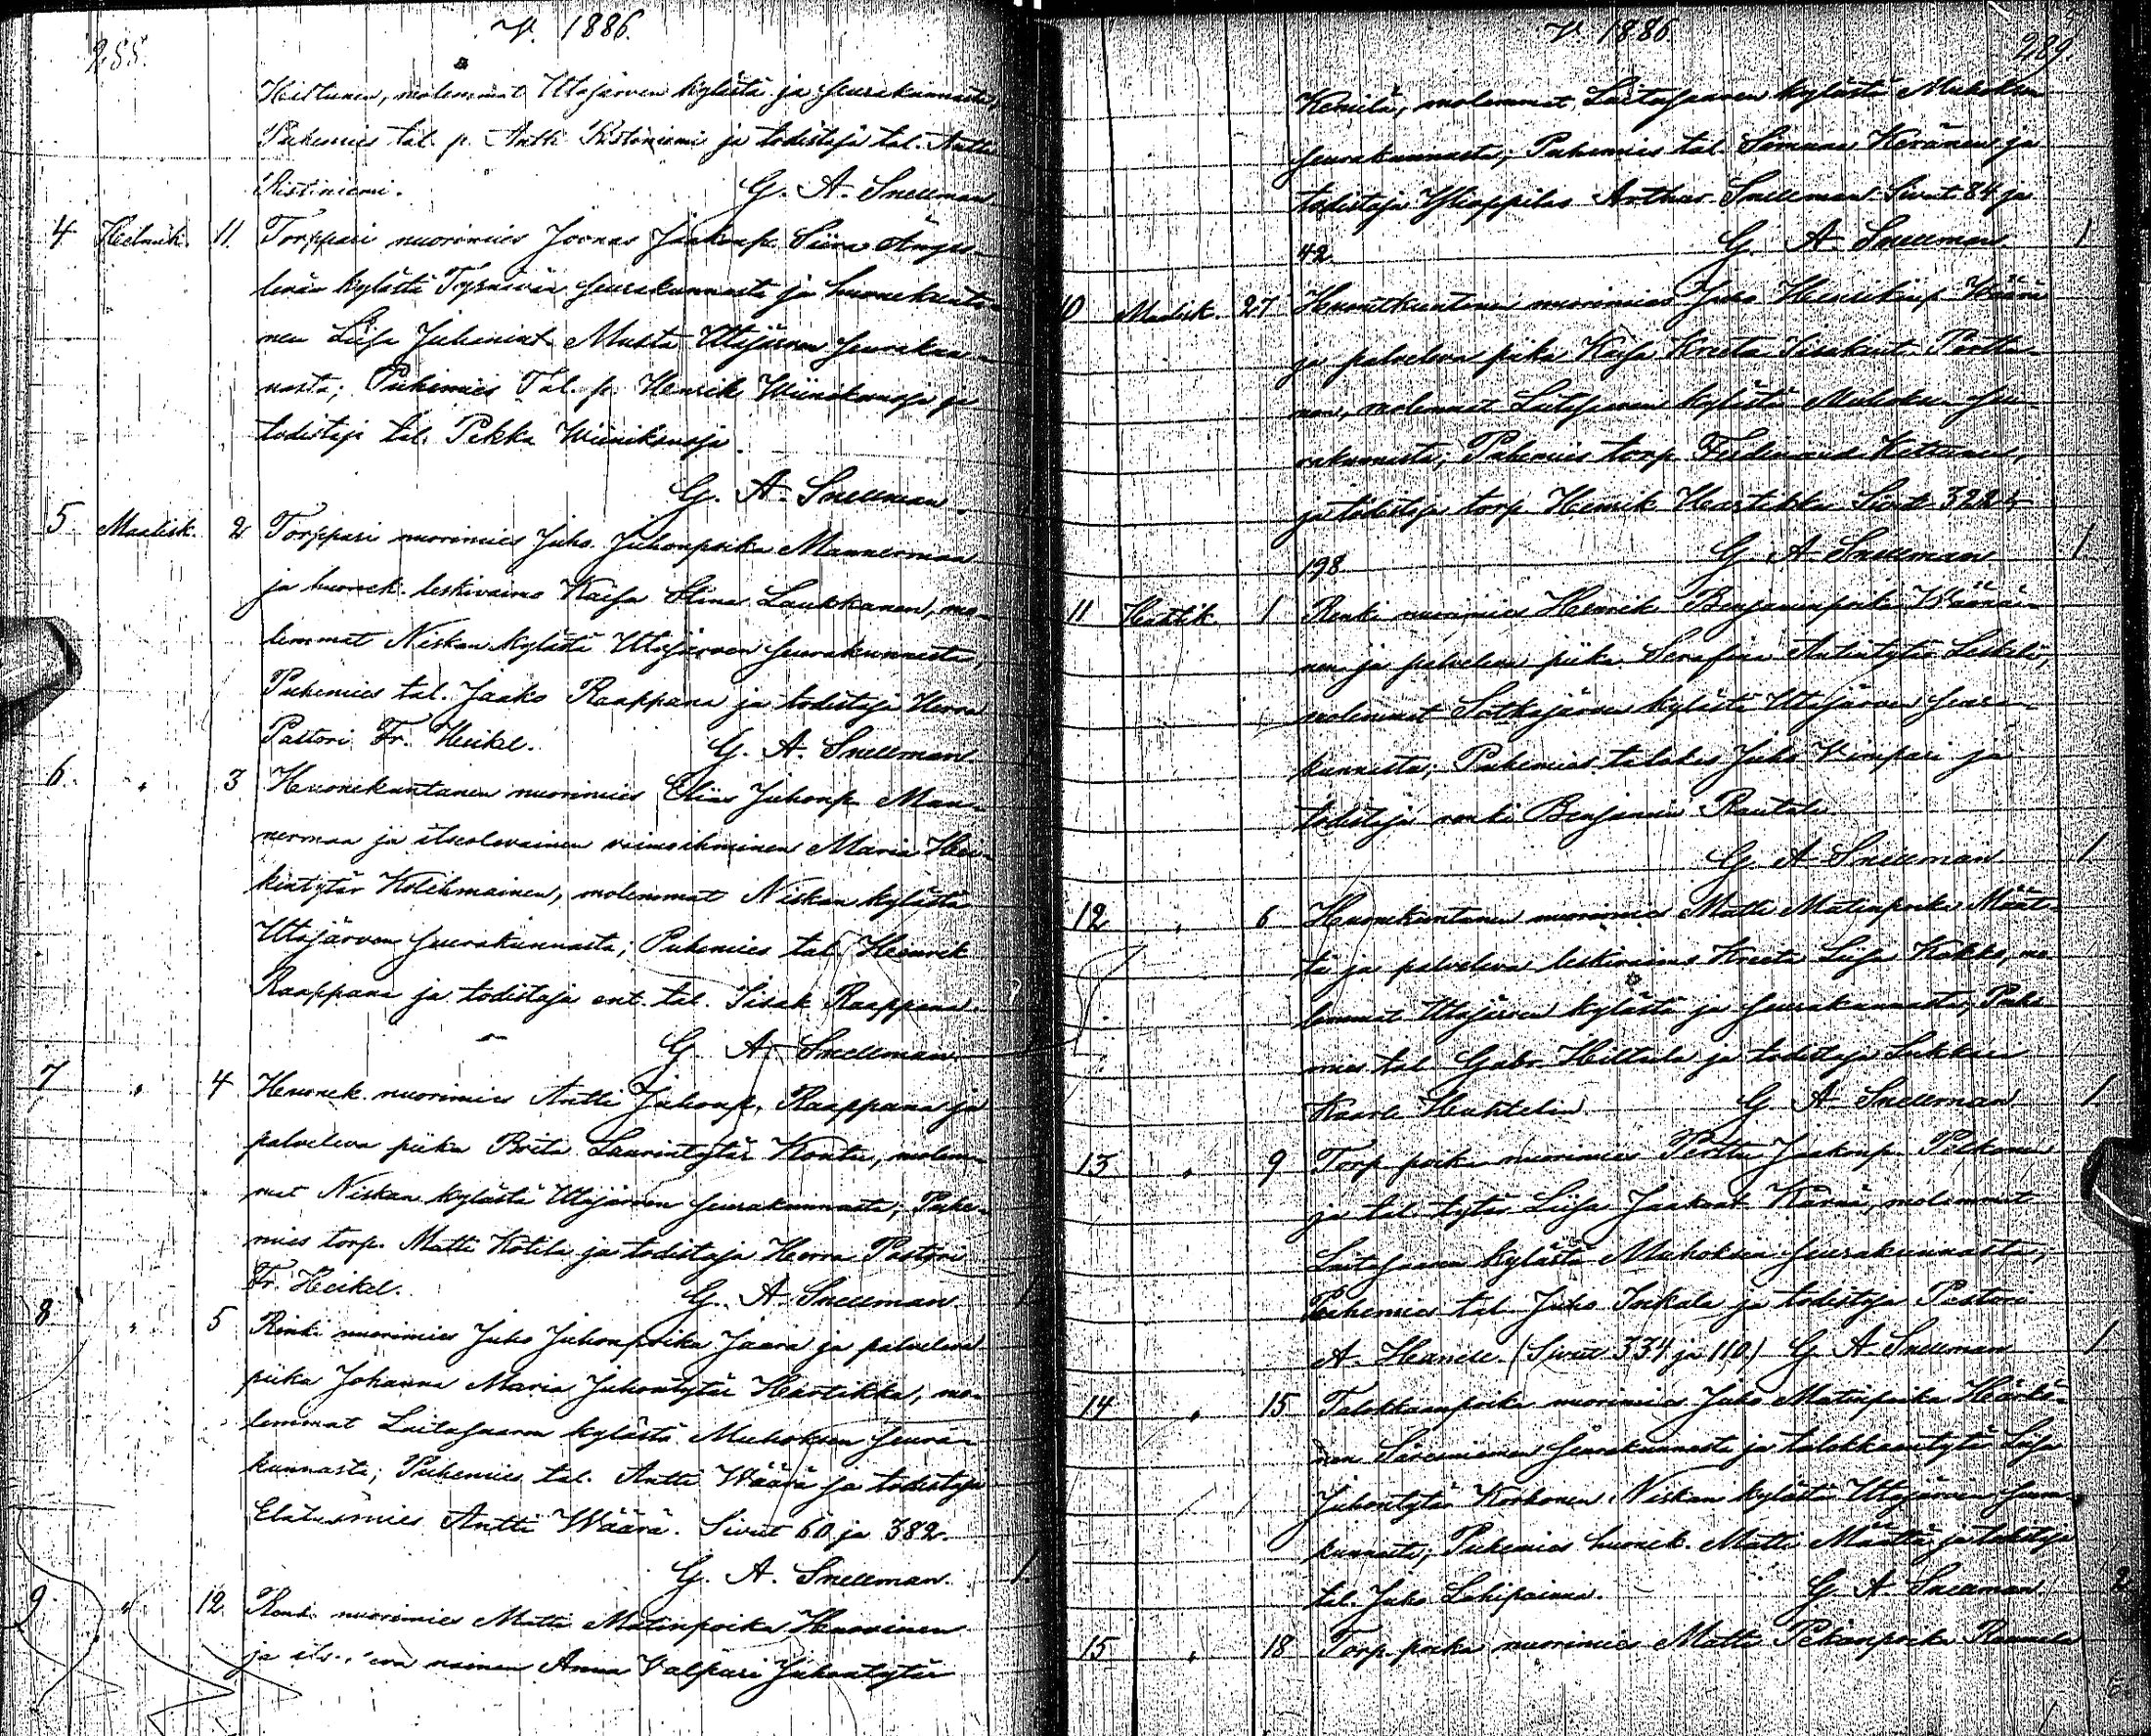 288.
V. 1886.
Hiltunen, molemmat Utajärven kylästä ja seurakunnasta,
Puhemies tal. p. Antti Ristiniemi ja todistaja tal. Antti
Ristiniemi. G. A. Snellman
4 Helmik. 11. Torppari nuorimies Joonas Jaakonp. Siira Änges-
levän kylästä Tyrnävän seurakunnasta ja huonekunta-
nen Liisa Juhonint. Musta Utajärven seurakun-
nasta; Puhemies Tal. p. Henrik Wiinikanoja ja
todistaja tal. Pekka Wiinikanoja.
G. A. Snellman.
5 Maalisk. 2 Torppari nuorimies Juho Juhonpoika Mannermaa
ja huonek. leskivaimo Kaisa Stina Laukkanen, mo-
lemmat Niskan kylästä Utajärven seurakunnasta,
Puhemies tal. Jaako Raappana ja todistaja Herra
Pastori Fr. Heikel. G. A. Snellman
6. " 3 Huonekuntanen nuorimies Elias Juhonp. Man-
nermaa ja itseolevainen vaimoihminen Maria Hei-
kintytär Kolehmainen, molemmat Niskan kylästä
Utajärven seurakunnasta; Puhemies tal. Henrik
Raappana ja todistaja ent. tal. Iisak Raappana.
G. A. Snellman
7 " 4 Huonek. nuorimies Antti Juhonp. Raappana ja
palveleva piika Brita Laurintytär Kontu, molem-
mat Niskan kylästä Utajärven seurakunnasta; Puhe-
mies torp. Matti Kotila ja todistaja Herra Pastori
Fr. Heikel. G. A. Snellman. 1
8 " 5 Renki nuorimies Juho Juhonpoika Jaara ja palveleva
piika Johanna Maria Juhontytär Hartikka, mo-
lemmat Laitasaaren kylästä Muhoksen seura-
kunnasta; Puhemies tal. Antti Väärä ja todistaja
Elatusmies Antti Wäärä. Sivut 60 ja 382.
G. A. Snellman. 1.
9 " 12 Renki nuorimies Matti Matinpoika Huovinen
ja nainen Anna Valpuri Juhontytär
V. 1886.
289.
Kemilä, molemmat Laitasaaren kylästä Muhoksen
seurakunnasta; Puhemies tal. Simuna Keränen ja
todistaja Ylioppilas Arthur Snellman. Sivut 84 ja
42. G. A. Snellman. 1
10 Maalisk. 27 Huonekuntanen nuorimies Juho Henrikinp. Wäärä
ja palveleva piika Kaisa Kreeta Iisakint. Perttu-
nen, molemmat Laitasaaren kylästä Muhoksen seu-
rakunnasta; Puhemies torp. Ferdinand Keltunen,
ja todistaja torp. Henrik Hartikka Sivut 322 &
198 G. A. Snellman 1
11 Huhtik. 1 Renki nuorimies Henrik Benjaminpoika Väänä-
nen ja palveleva piika Serafina Antintytär Leskelä,
molemmat Sotkajärven kylästä Utajärven seura-
kunnasta; Puhemies talokas Juho Vimpari ja
todistaja renki Benjamin Rautala
G. A. Snellman 1
12 " 6 Huonekuntanen nuorimies Matti Matinpoika Määt-
tä ja palveleva leskivaimo Kreeta Liisa Kokko, mo-
lemmat Utajärven kylästä ja seurakunnasta; Puhe-
mies tal. Gabr. Hiltula ja todistaja Lukkari
Kaarl Huhtelin. G. A. Snellman 1.
13 " 9 Torp. poika nuorimies Perttu Jaakonp. Pelkonen
ja tal. tytär Liisa Jaakont. Karna, molemmat
Laitasaaren kylästä Muhoksen seurakunnasta;
Puhemies tal. Juho Inkala ja todistaja Pastori
A. Hanell. (Sivut 334 ja 110.) G. A. Snellman 1
14 " 15 Talokkaanpoika nuorimies Juho Matinpoika Härkö-
nen Säresniemen seurakunnasta ja talokkaantytär Liisa
Juhontytär Korhonen Niskan kylästä Utajärven seura-
kunnasta; Puhemies huonek. Matti Määttä ja todistaja
tal. Juho Lohipainen. G. A. Snellman 2
15 " 18 Torp. poika nuorimies Matti Pekanpoika